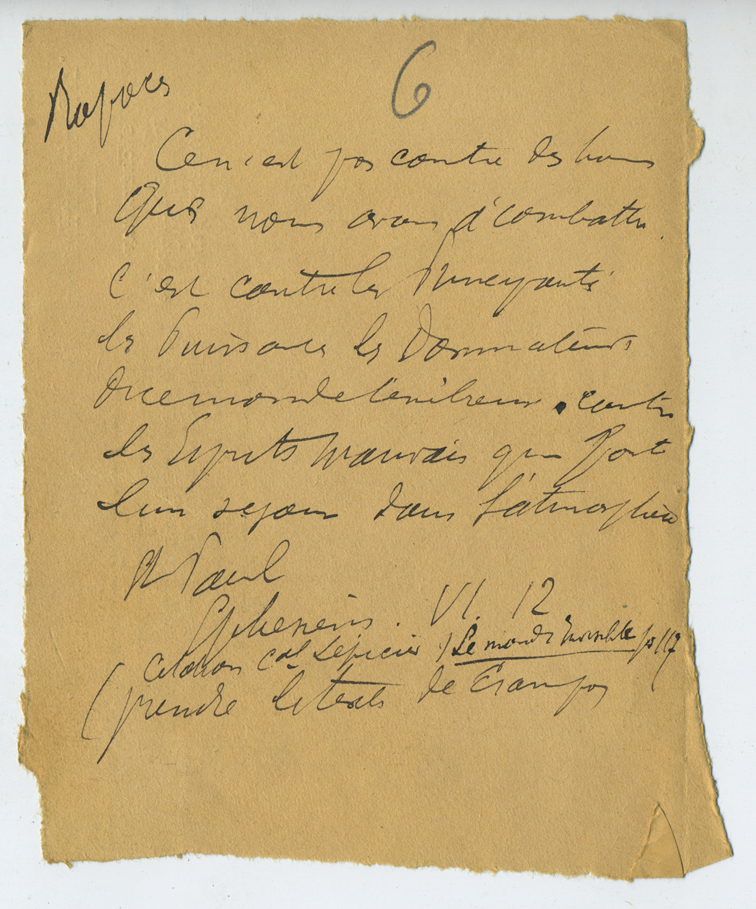 6
Ce n'est pas contre des hom
que nous avons à combattre.
c'est contre les
les Puissances les Dominateurs
de ce monde ténébreux. contre
les Esprits mauvais qui font
leur séjour dans l'atmosphère
St Paul
Ephesiens. VI. 12
citation cal Lépicier) Le monde Invisible p 117
(prendre le texte de Crampon